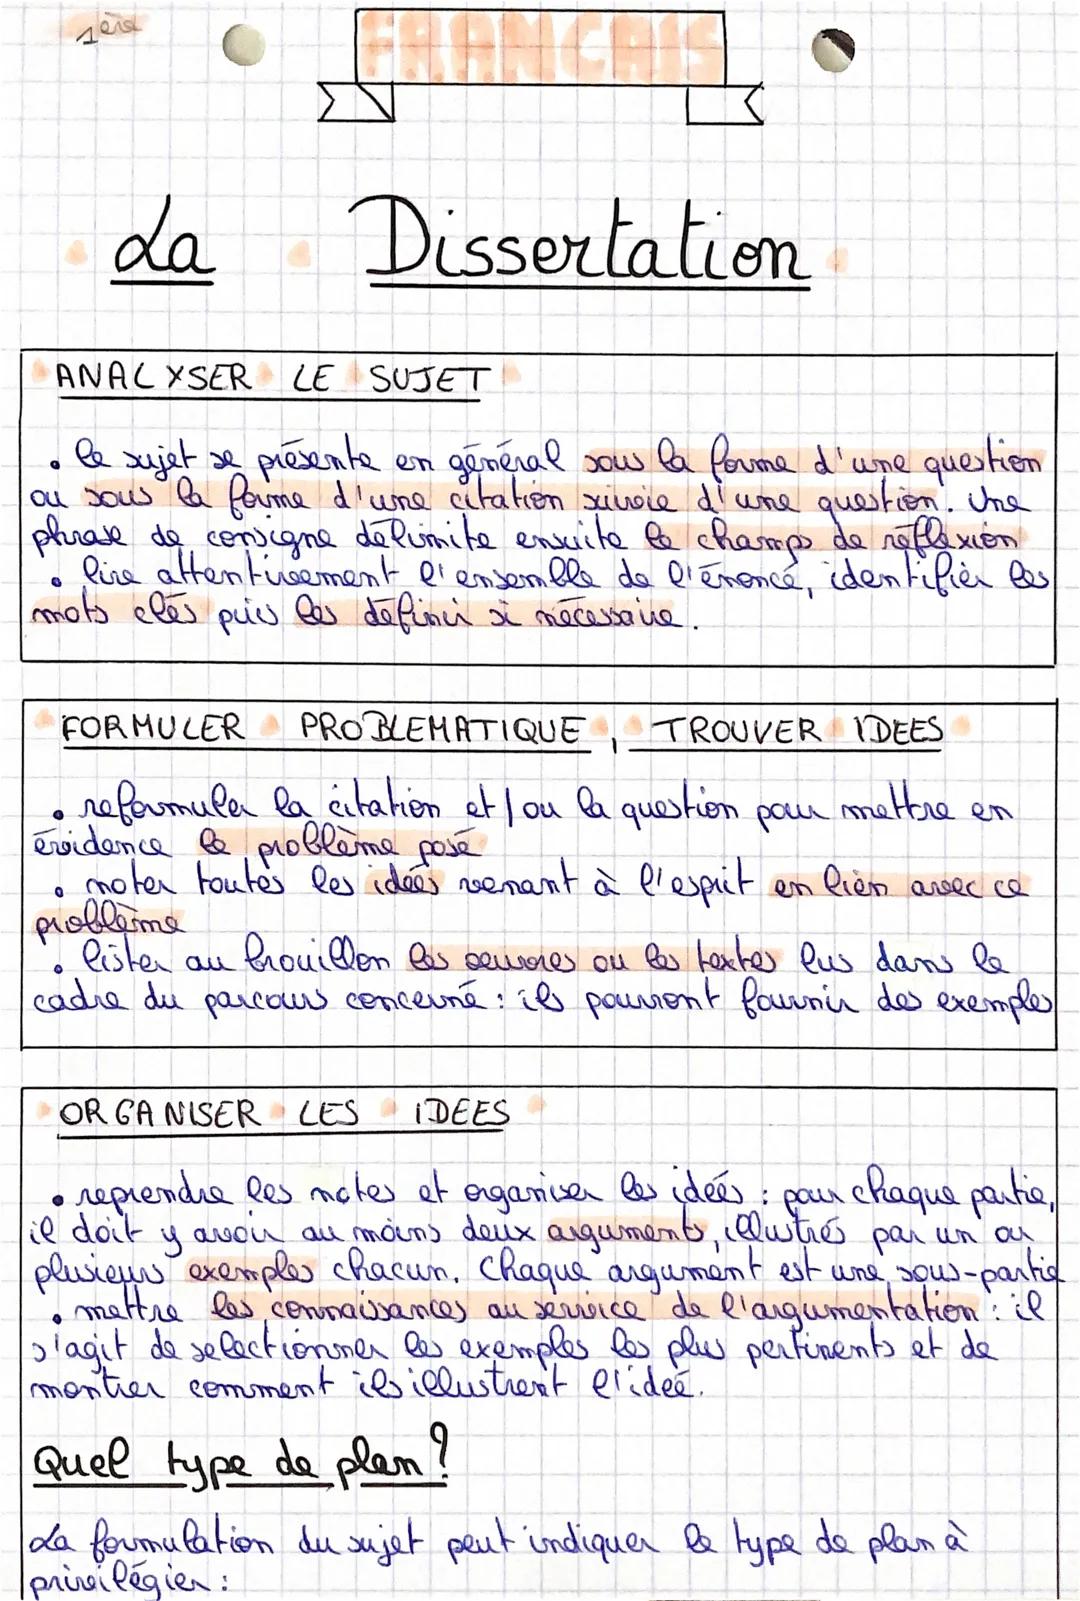 1ère
FRANCAIS
La Dissertation
ANALYSER LE SUJET
• le sujet se présente en général sous la forme d'une question
ou sous la forme d'une citation suivie d'une question. Une
phrase de consigne délimite ensuite le champs de réflexion
• lire attentivement l'ensemble de l'énoncé, identifier les
mots clés puis les définir si nécessaire.
FORMULER PROBLEMATIQUE, TROUVER IDEES
• reformuler la citation et/ou la question pour mettre en
évidence le problème posé
• noter toutes les idées venant à l'esprit en lien avec ce
problème
• lister au brouillon les oeuvres ou les textes lus dans le
cadre du parcours concerné : ils pourront fournir des exemples
ORGANISER LES IDEES
• reprendre les notes et organiser les idées : pour chaque partie,
il doit y avoir au moins deux arguments, illustrés par un ou
plusieurs exemples chacun. Chaque argument est une sous-partie
• mettre les connaissances au service de l'argumentation : il
s'agit de selectionner les exemples les plus pertinents et de
montrer comment ils illustrent l'ideé.
Quel type de plan ?
La formulation du sujet peut indiquer le type de plan à
privilégier :